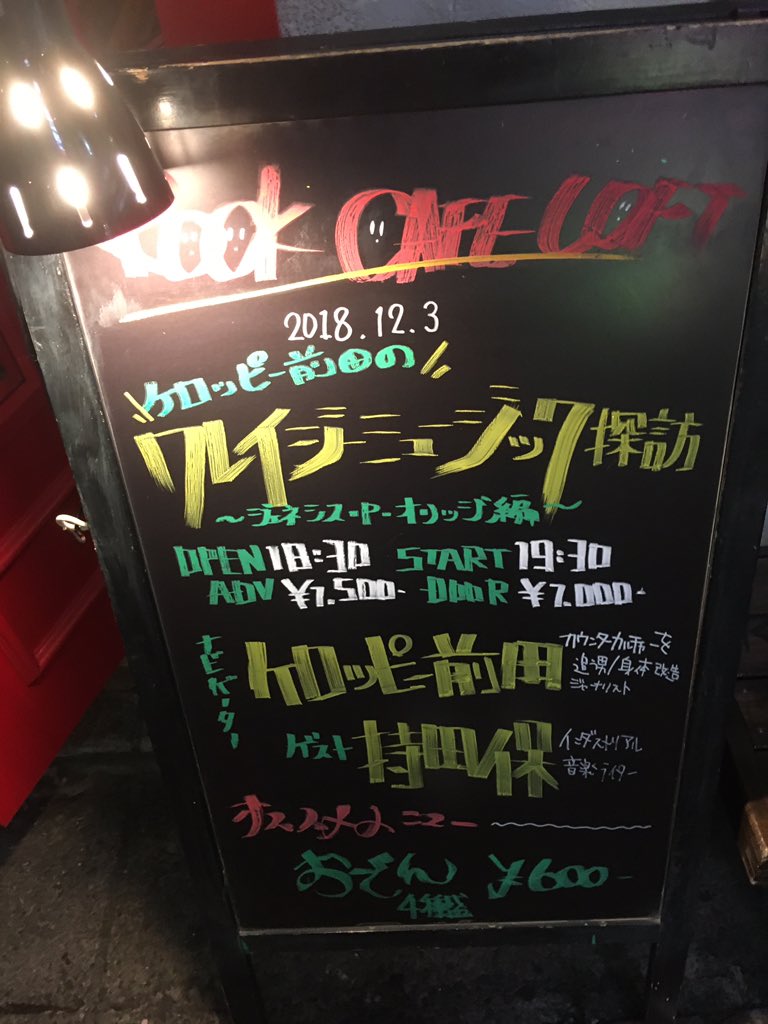 ROCK CAFE LOFT
2018.12.3
ケロッピー前田の
クレイジーミュージック探訪
～ジェネシス・P・オリッジ編～
OPEN 18:30 START 19:30
ADV ¥1,500- DOOR ¥2,000-
ナビゲーター
ケロッピー前田
カウンターカルチャーを
追究/身体改造
ジャーナリスト
ゲスト 持田保
インダストリアル
音楽ライター
オススメメニュー
おでん ¥600-
4種盛